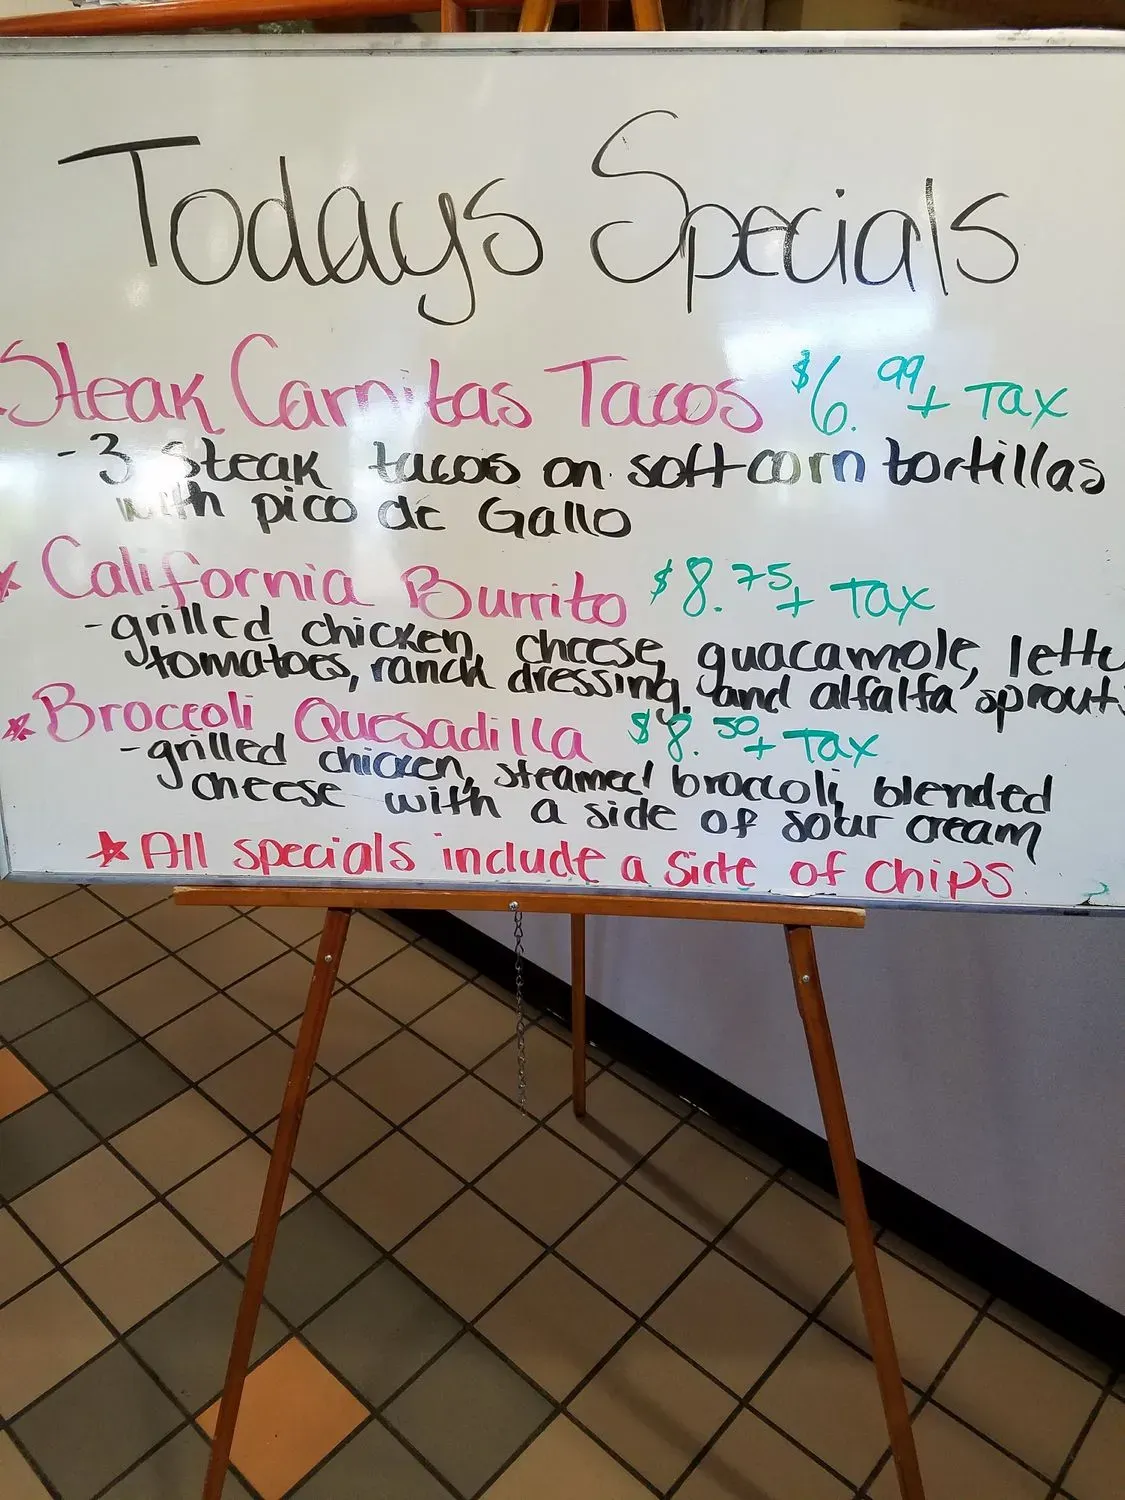 Todays Specials
Steak Carnitas Tacos $6.99 + Tax
- 3 Steak tacos on soft corn tortillas
with pico de Gallo
California Burrito $8.75 + Tax
- grilled chicken, cheese, guacamole, lettu
tomatoes, ranch dressing, and alfalfa sprouts
Broccoli Quesadilla $8.50 + Tax
- grilled chicken, steamed broccoli, blended
cheese with a side of sour cream
All specials include a side of chips.